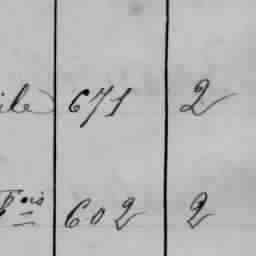 ile 671 2
602 2